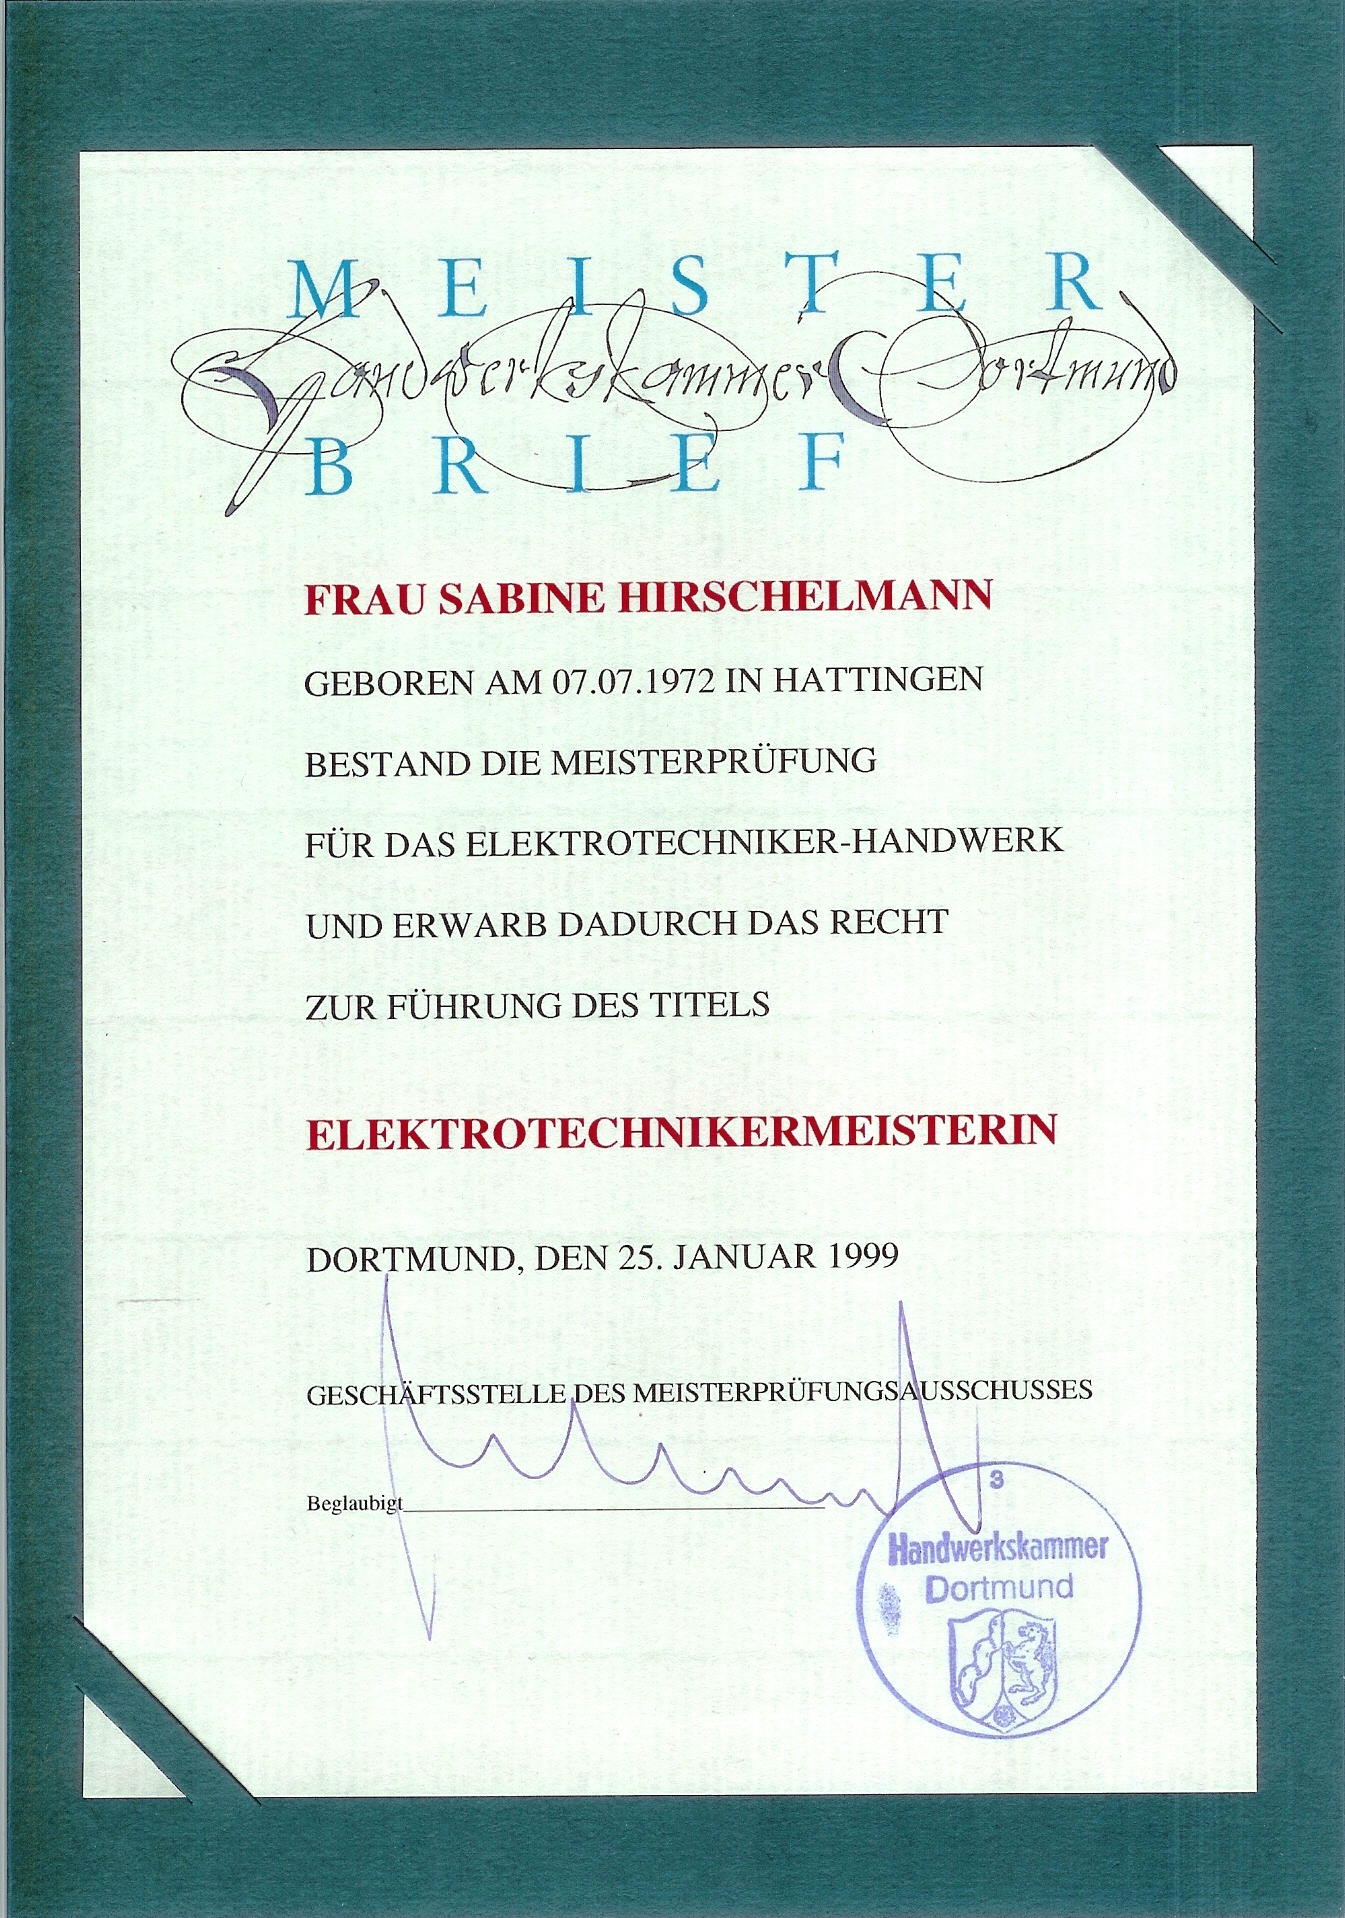 MEISTER
Handwerkskammer Dortmund
BRIEF
FRAU SABINE HIRSCHELMANN
GEBOREN AM 07.07.1972 IN HATTINGEN
BESTAND DIE MEISTERPRÜFUNG
FÜR DAS ELEKTROTECHNIKER-HANDWERK
UND ERWARB DADURCH DAS RECHT
ZUR FÜHRUNG DES TITELS
ELEKTROTECHNIKERMEISTERIN
DORTMUND, DEN 25. JANUAR 1999
GESCHÄFTSSTELLE DES MEISTERPRÜFUNGSAUSSCHUSSES
Beglaubigt
3
Handwerkskammer
Dortmund